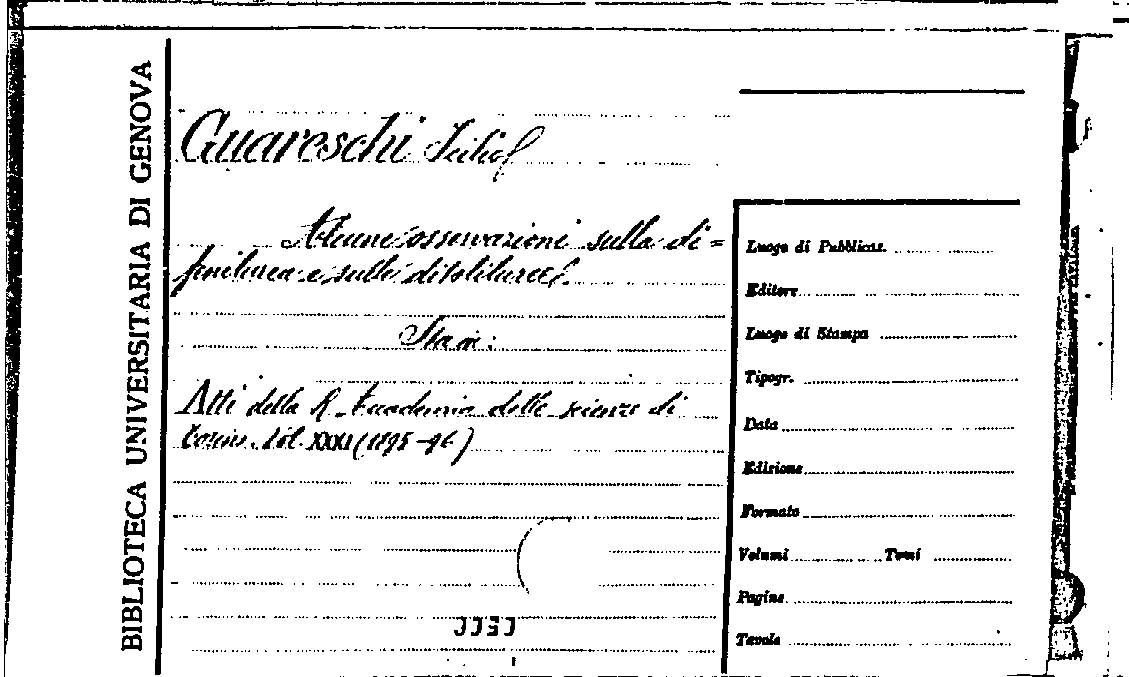 BIBLIOTECA UNIVERSITARIA DI GENOVA
Guareschi
Alcune osservazioni sulla di=
feniturea e sulle ditolituree.
Sta in:
Atti della R. Accademia delle scienze di
Torino. Vol. XXXI (1895-96)
Luogo di Pubblicaz.
Editore
Luogo di Stampa
Tipogr.
Data
Edizione
Formato
Volumi Tomi
Pagine
Tavole